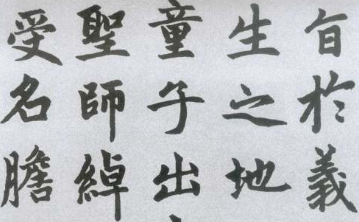 旨於義
生之地
童子出
聖師綽
受名膽